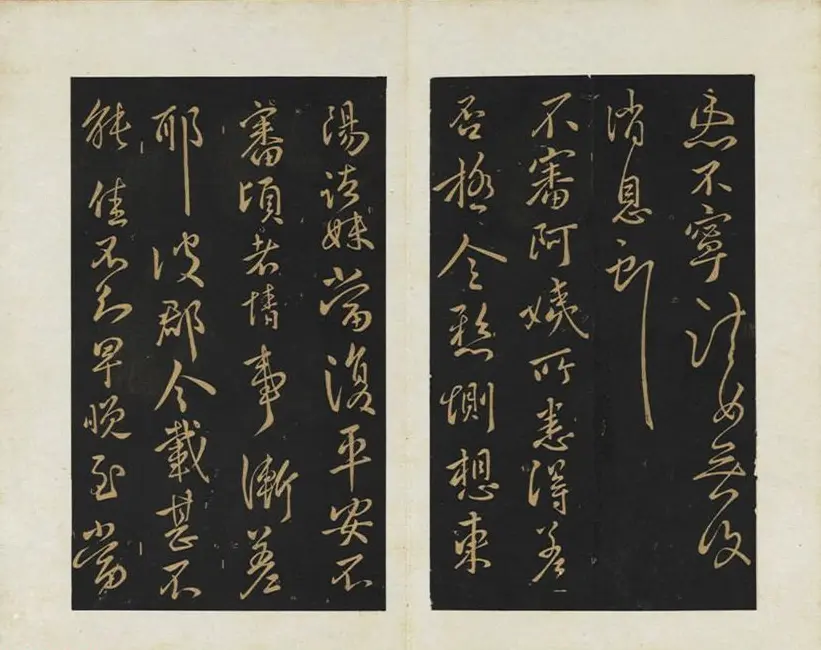 不寧諸女無復
消息
不審阿姨所患得差
否極令懸惻想東
陽諸妹當復平安不
審頃者情事漸差
耶彼郡今載甚不
能佳不知早晚至當